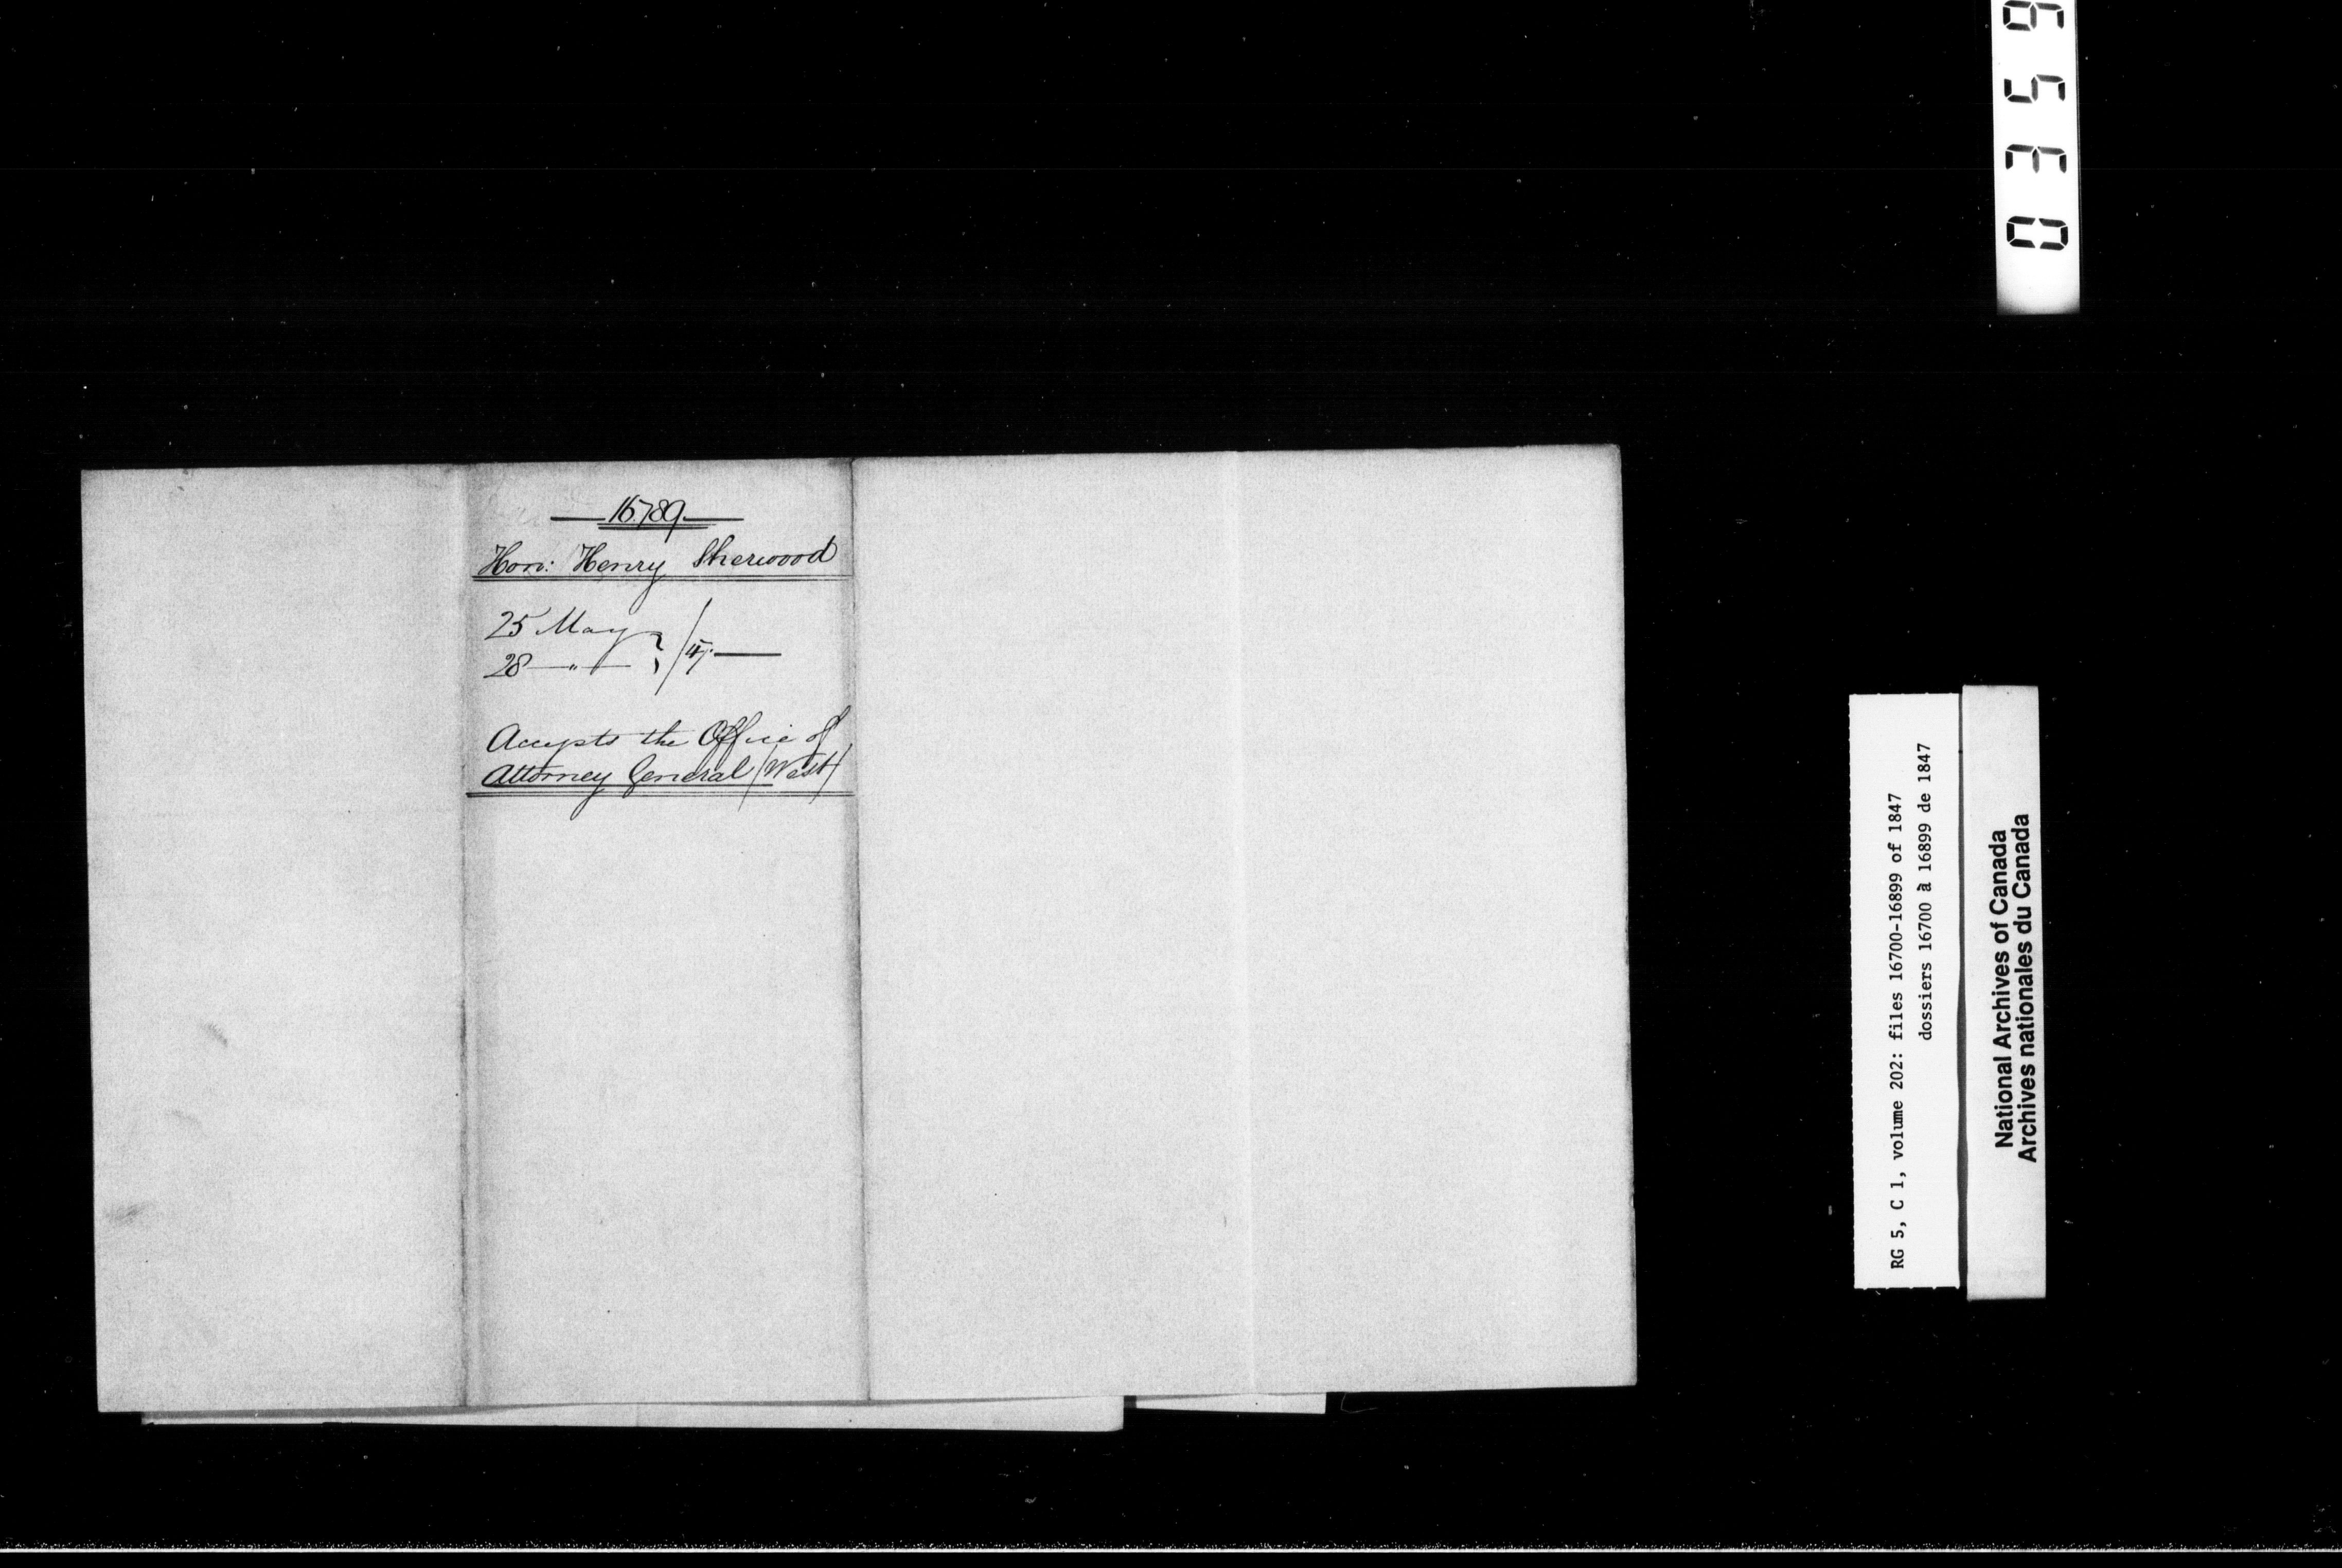 16789
Hon: Henry Sherwood
25 May } /47.
28 — " —
Accepts the Office of
Attorney General /West/
0359
RG 5, C 1, volume 202: files 16700-16899 of 1847
dossiers 16700 à 16899 de 1847
National Archives of Canada
Archives nationales du Canada